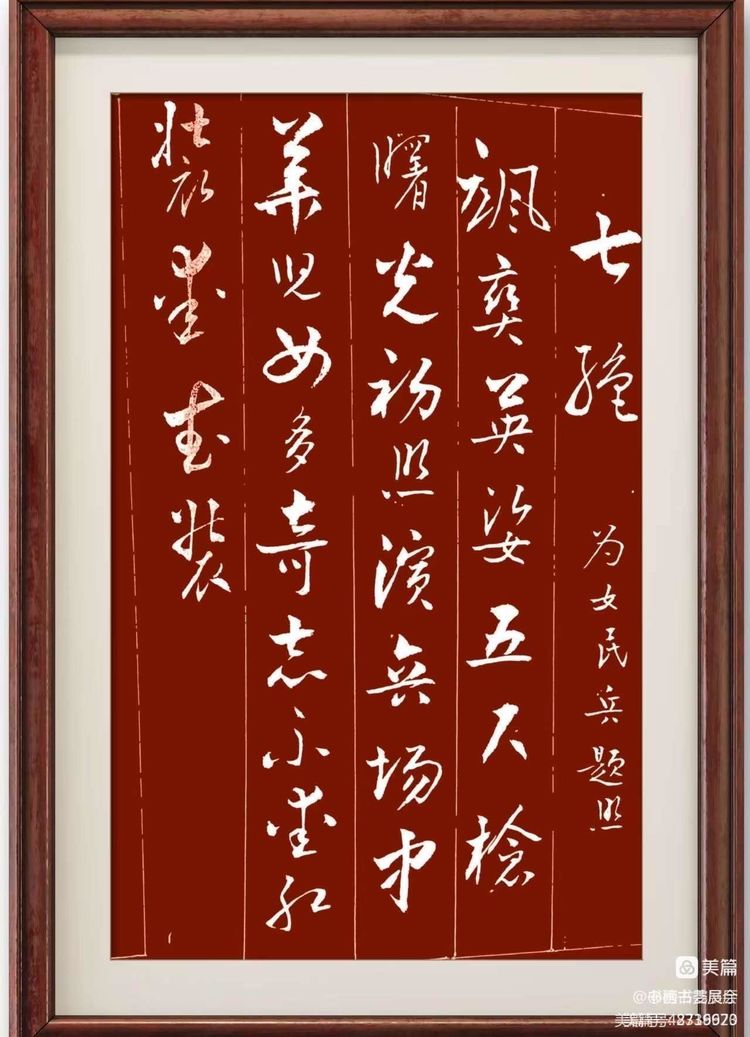 七绝 为女民兵题照
飒爽英姿五尺槍
曙光初照演兵场中
華児女多奇志不爱红
装爱武装
美篇